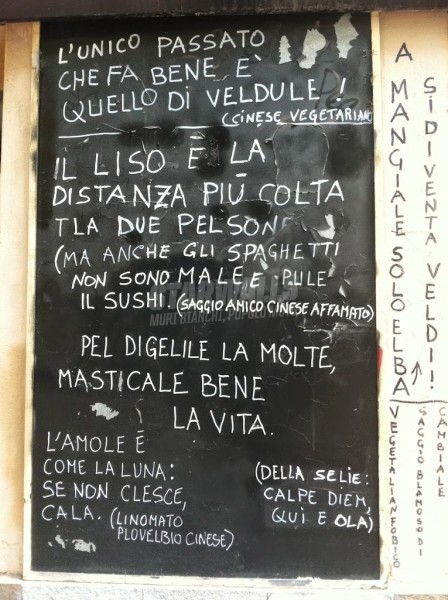 L'UNICO PASSATO
CHE FA BENE E'
QUELLO DI VELDULE!
(CINESE VEGETARIANO
IL LISO E LA
DISTANZA PIÚ COLTA
TLA DUE PELSONE
(MA ANCHE GLI SPAGHETTI
NON SONO MALE E PULE
IL SUSHI. (SAGGIO AMICO CINESE AFFAMATO)
PEL DIGELILE LA MOLTE,
MASTICALE BENE
LA VITA.
L'AMOLE É
COME LA LUNA:
SE NON CLESCE,
CALA. (LINOMATO
PLOVELBIO CINESE)
(DELLA SELIE:
CALPE DIEM,
QUÌ E OLA)
A MANGIALE SOLO ELBA
SI DIVENTA VELDI!
VEGETALIANFOBICO
SAGGIO BLAMOSO DI
CAMBIALE
MURI BIANCHI, POPOLO MUTO